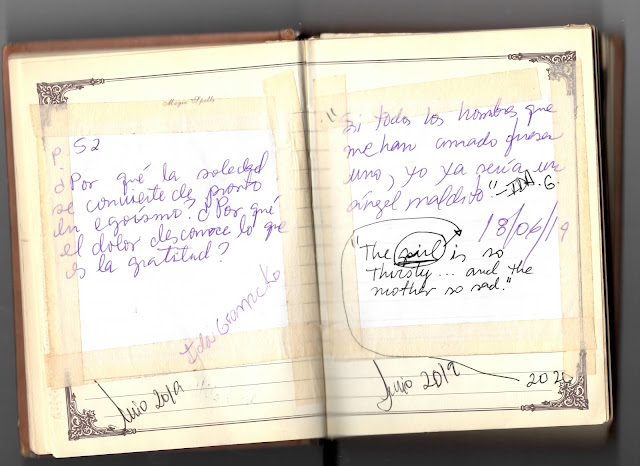 Magic Spells
P. 52
¿Por qué la soledad
se convierte de pronto
en egoísmo? ¿Por qué
el dolor desconoce lo que
es la gratitud?
Ida Gramcko
Junio 2019
"Si todos los hombres que
me han amado fueran
uno, yo ya sería un
ángel maldito." -IDA. G.
18/06/19
"The girl is so
thirsty... and the
mother so sad."
Junio 2019